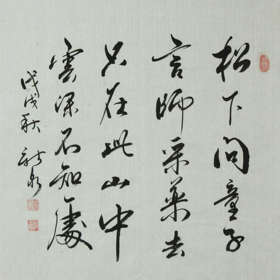 松下问童子
言師采藥去
只在此山中
雲深不知處
戊戌秋